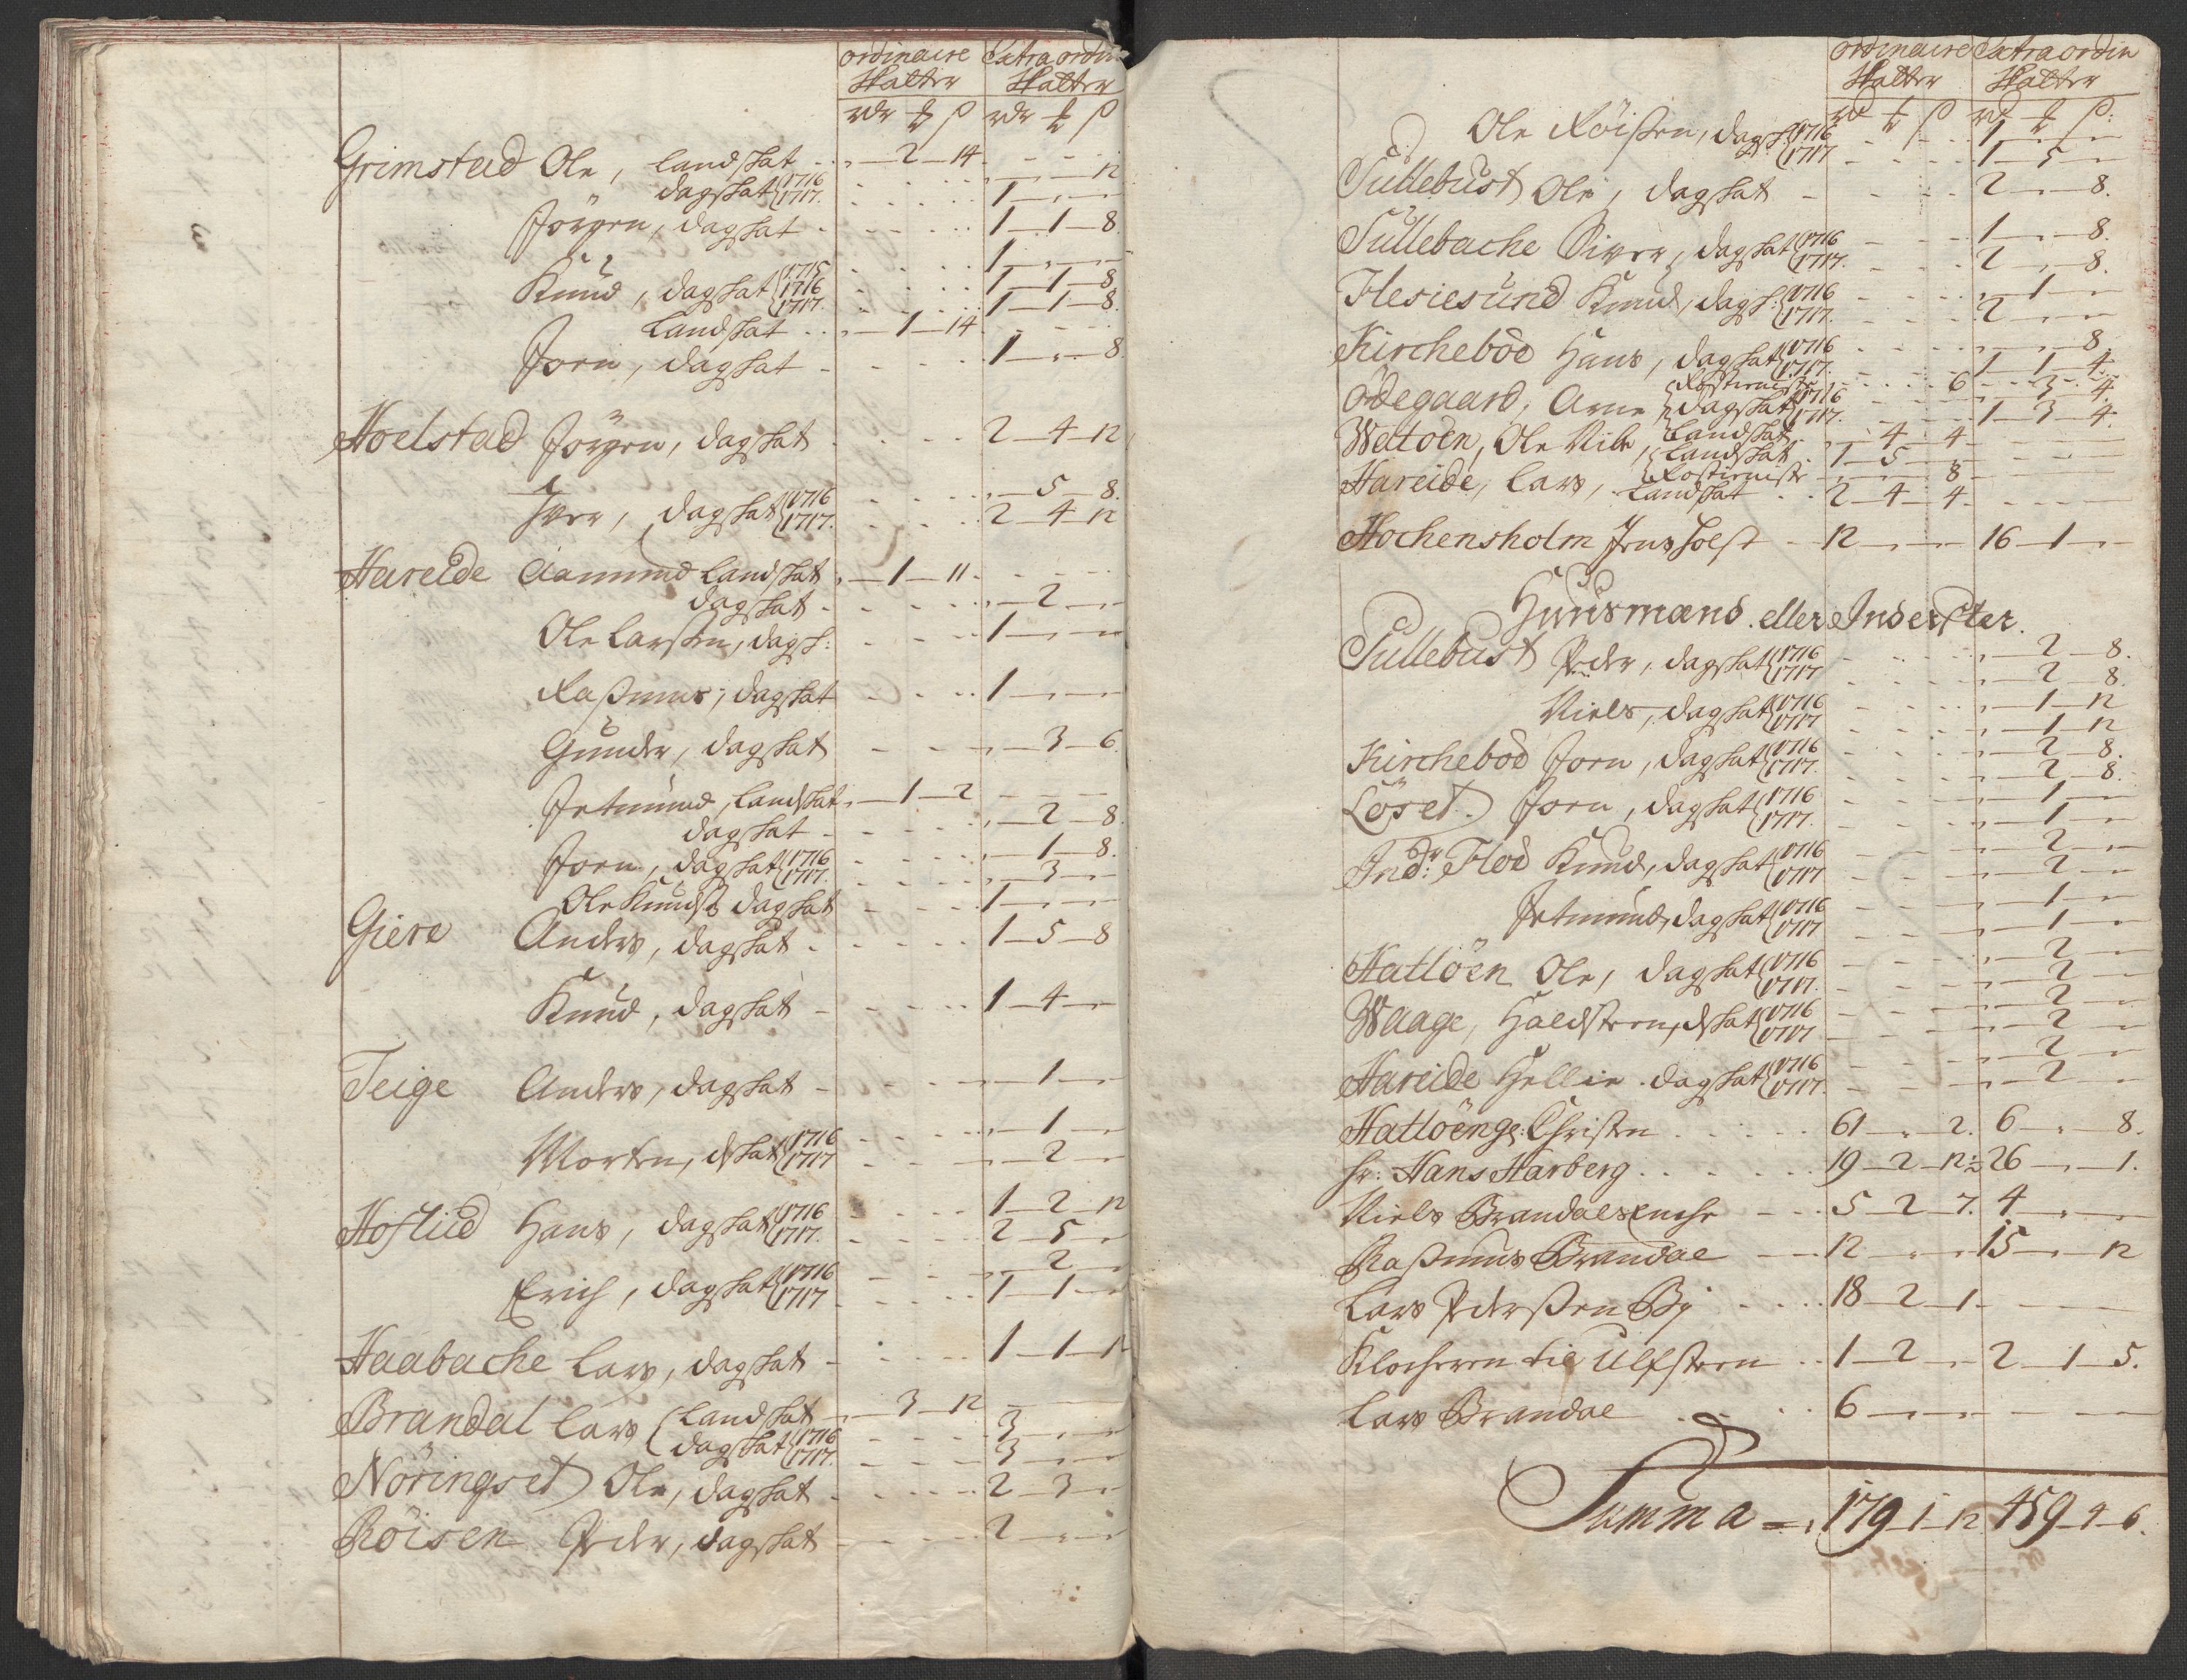 ordinaire Extraordin
Skatter Skatter
rdr ß rdr ß
Grimstad Ole, landskat - 2 - 14
dagskat 1716 12
1717. 1
Jörgen, dagskat 1 - 1 - 8
Knud, dagskat 1715 1
1716 1 - 1 - 8
1717 1 - 1 - 8
Landskat 1 - 14
Jorn, dagskat 1 - 8
Hoelstad Jörgen, dagskat 2 - 4 - 12
Iver, dagskat 1716 5 - 8
1717. 2 - 4 - 12
Hareide Aamund Landskat 1 - 11
dagskat 2
Ole Larssen, dagsk: 1
Rassmus, dagskat 1
Gunder, dagskat 3 - 6
Jetmund, Landskat 1 - 2
dagskat 2 - 8
Jorn, dagskat 1716 1 - 8
1717. 3
Ole Knuds dagskat 1
Giere Anders, dagskat 1 - 5 - 8
Knud, dagskat 1 - 4
Teige Anders, dagskat 1
Morten, dskat 1716 1
1717 2
Hoflid Hans, dagskat 1716 1 - 2 - 12
1717. 2 - 5
Erich, dagskat 1716 2
1717 1 - 1
Haabache Lars, dagskat 1 - 1 - 12
Brandal Lars Landskat 3 - 12
dagskat 1716 3
1717. 3
Nöringset Ole, dagskat 2 - 3
Röisen Peder, dagskat 2
ordinaire Extraordin
Skatter Skatter
rd ß rd ß
Ole Röissen, dagsk 1716 1
1717 1 - 5
Tullebust Ole, dagskat 2 - 8.
Tullebache Siver, dagskat 1716 1 - 8.
1717. 2 - 8.
Flesiesund Knud, dagsk: 1716 1
1717. 2
Kircheböe Hans, dagskat 1716 8.
1717. 1 - 1 - 4.
Ödegaard, Arne Rostieniste 6
dagskat 1716 3 - 4.
1717. 1 - 3 - 4.
Watöen, Ole Nils, Landskat 4 - 4
Landskat 1 - 5
Hareide, Lars, Rostieniste 8
Landskat 2 - 4 - 4
Hochensholm Jens Holst 12 16 - 1
Huusmænd eller Inderster.
Tullebust Peder, dagskat 1716 2 - 8.
1717 2 - 8.
Niels, dagskat 1716 1 - 12
1717 1 - 12
Kircheböe Jorn, dagskat 1716 2 - 8.
1717. 2 - 8.
Löset Jorn, dagskat 1716 1
1717. 1
Indr: Flöe Knud, dagskat 1716 2
1717 2
Jetmund, dagskat 1716 1
1717 1
Hatlöen Ole, dagskat 1716 2
1717. 2
Waage, Haldsteen, dskat 1716 2
1717 2
Hareide Hellie dagskat 1716 2
1717. 2
Hatlöengs: Christen 61 - 2. 6 - 8.
hr: Hans Harberg 19 - 2 - 12½ 26 - 1.
Niels Brandals Encke 5 - 2 - 7. 4
Rassmus Brandal 12 15 - 12
Lars Pederssen By 18 - 2 - 1.
Klocheren til Ulfsteen 1 - 2 2 - 1 - 5.
Lars Brandal 6
Summa = 179 - 1 - 12 459 - 4 - 6.